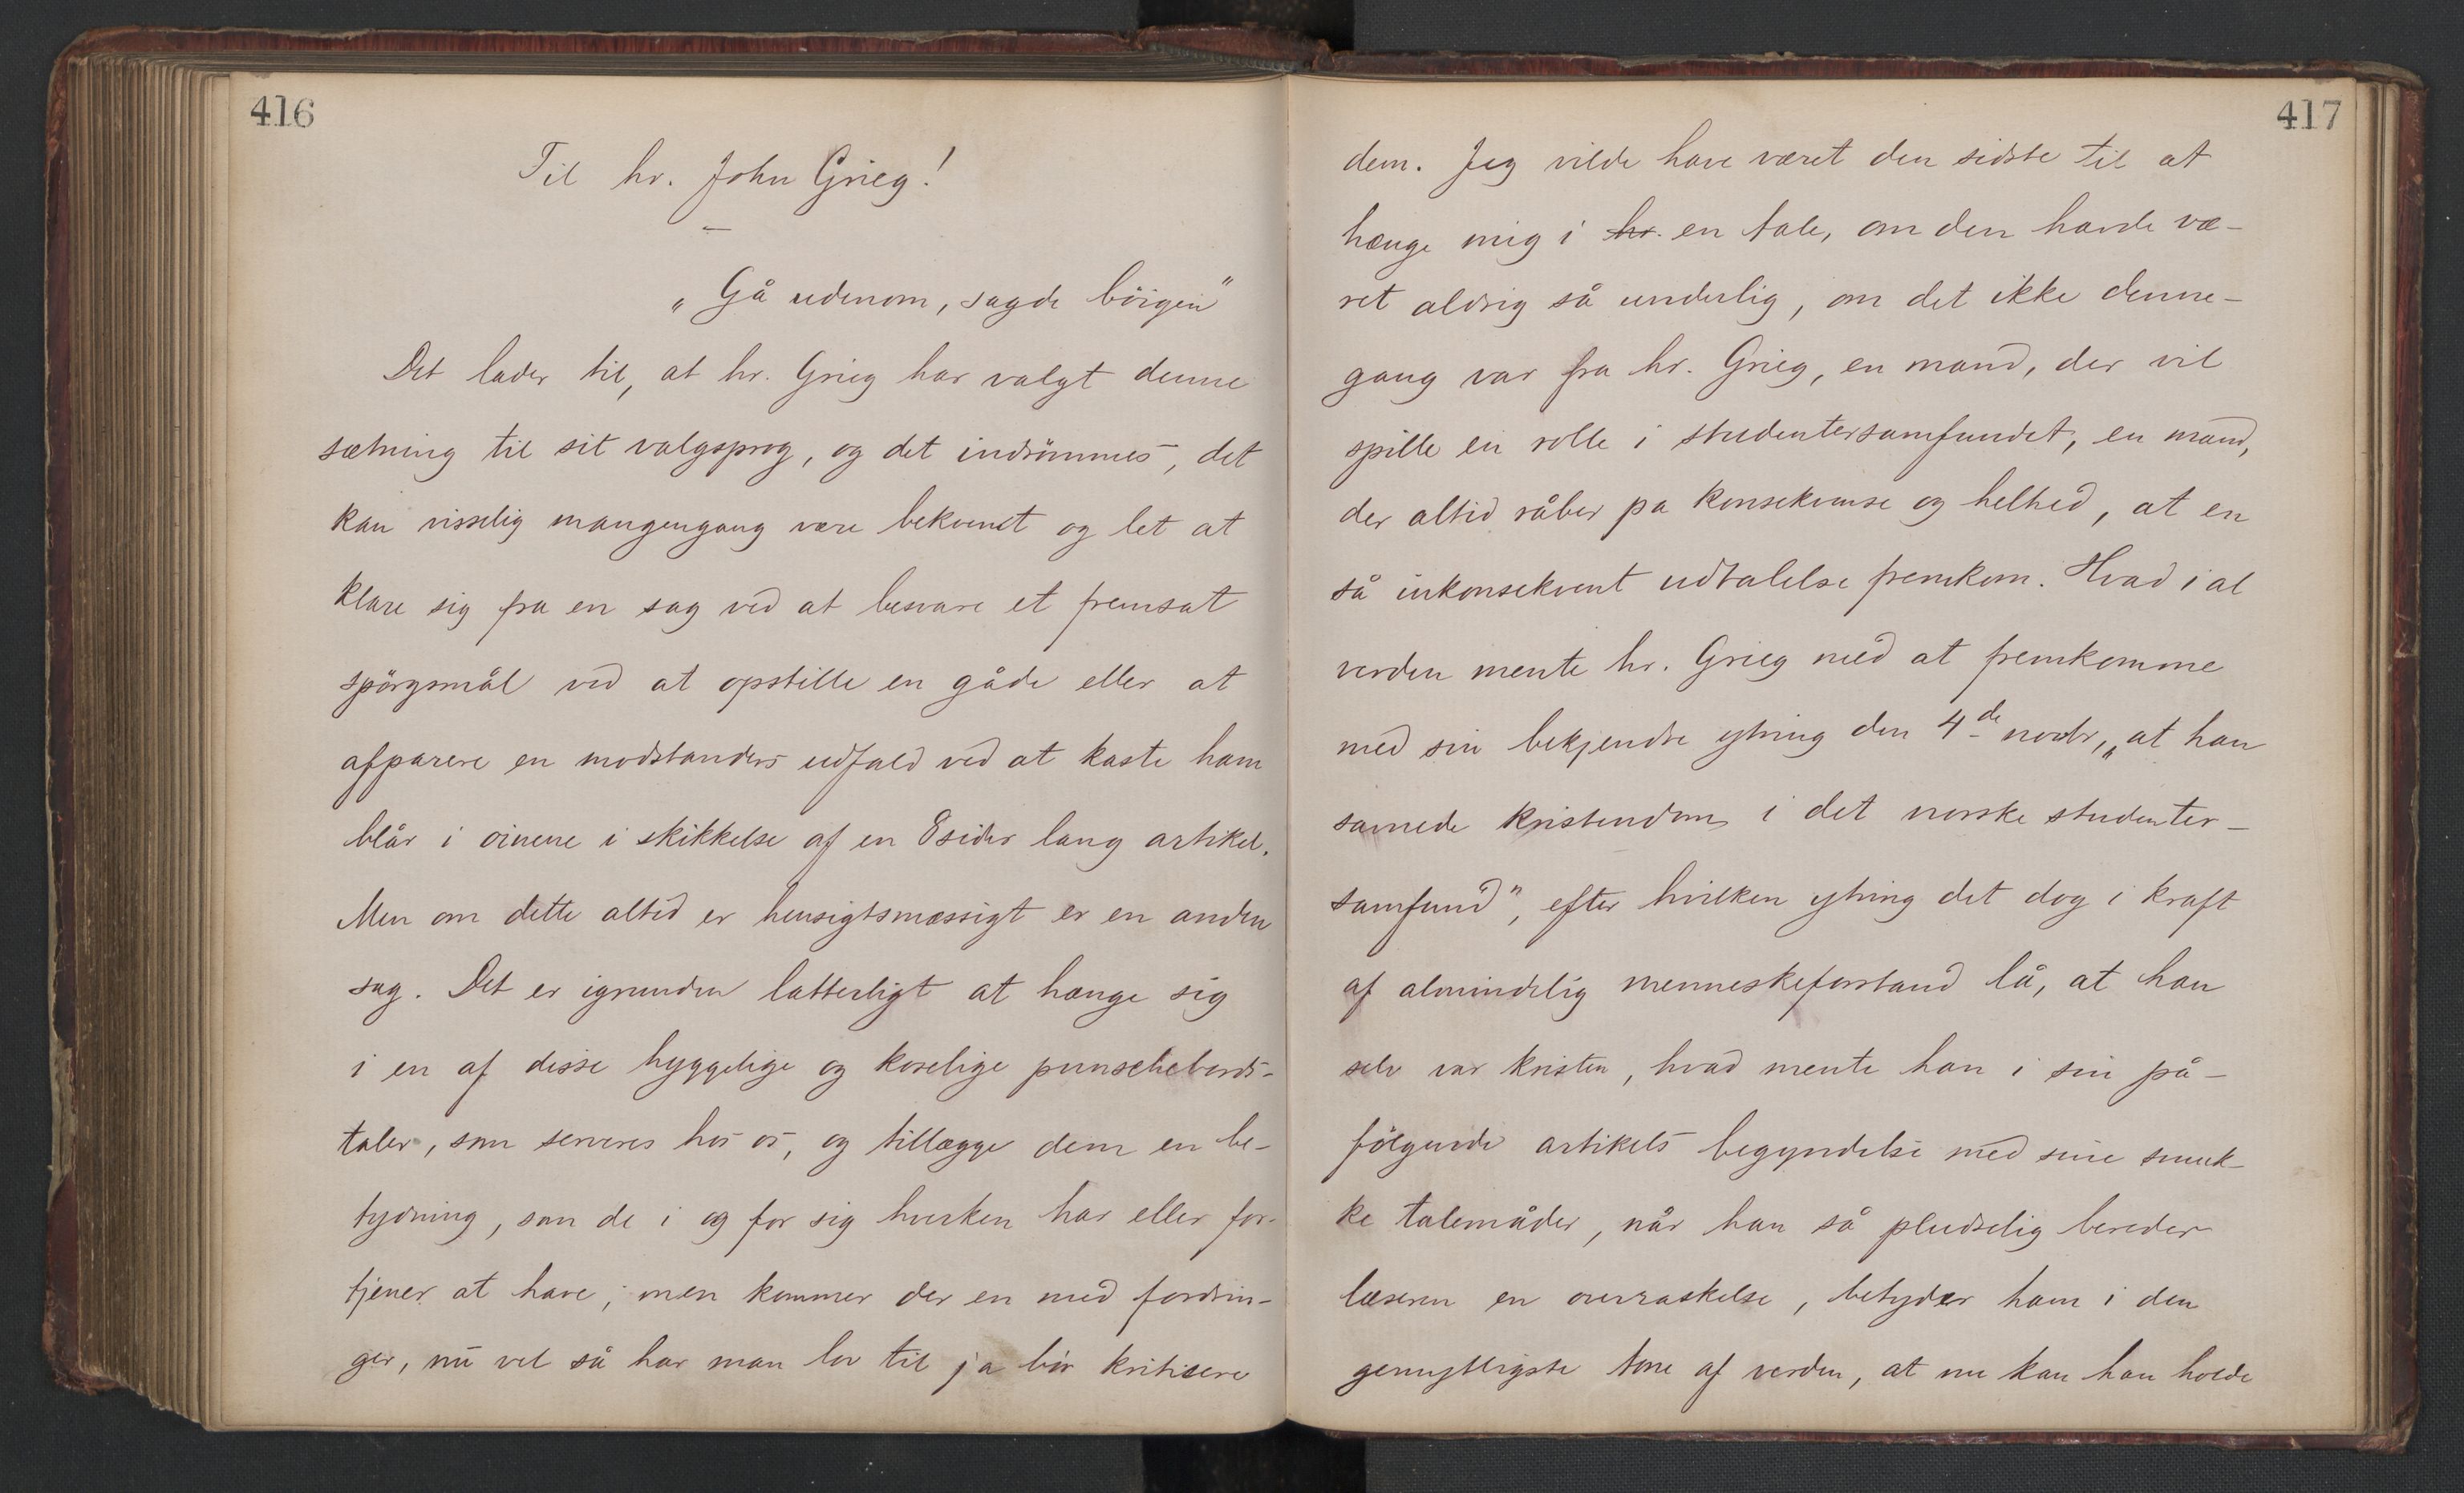 416
Til hr. John Grieg!
„Gå udenom, sagde böigen"
Det lader til, at hr. Grieg har valgt denne
sætning til sit valgsprog, og det indrömmes, det
kan visselig mangengang være bekvemt og let at
klare sig fra en sag ved at besvare et fremsat
spörgsmål ved at opstille en gåde eller at
afparere en modstanders udfald ved at kaste ham
blår i öinene i skikkelse af en 8 sider lang artikel.
Men om dette altid er hensigtsmæssigt er en anden
sag. Det er igrunden latterligt at hænge sig
i en af disse hyggelige og koselige punschebords-
taler, som serveres hos os, og tillægge dem en be-
tydning, som de i og for sig hverken har eller for-
tjener at have; men kommer der en med fordrin-
ger, nu vel så har man lov til ja bör kritisere
417
dem. Jeg vilde have været den sidste til at
hænge mig i hr. en tale, om den havde væ-
ret aldrig så underlig, om det ikke denne-
gang var fra hr. Grieg, en mand, der vil
spille en rolle i studentersamfundet, en mand,
der altid råber pa konsekvense og helhed, at en
så inkonsekvent udtalelse fremkom. Hvad i al
verden mente hr. Grieg med at fremkomme
med sin bekjendte ytring den 4de novbr, „at han
savnede kristendom i det norske studenter-
samfund", efter hvilken ytring det dog i kraft
af almindelig menneskeforstand lå, at han
selv var kristen, hvad mente han i sin på-
fölgende artikels begyndelse med sine smuk-
ke talemåder, når han så pludselig bereder
læseren en overraskelse, betyder ham i den
gemytligste tone af verden, at nu kan han holde